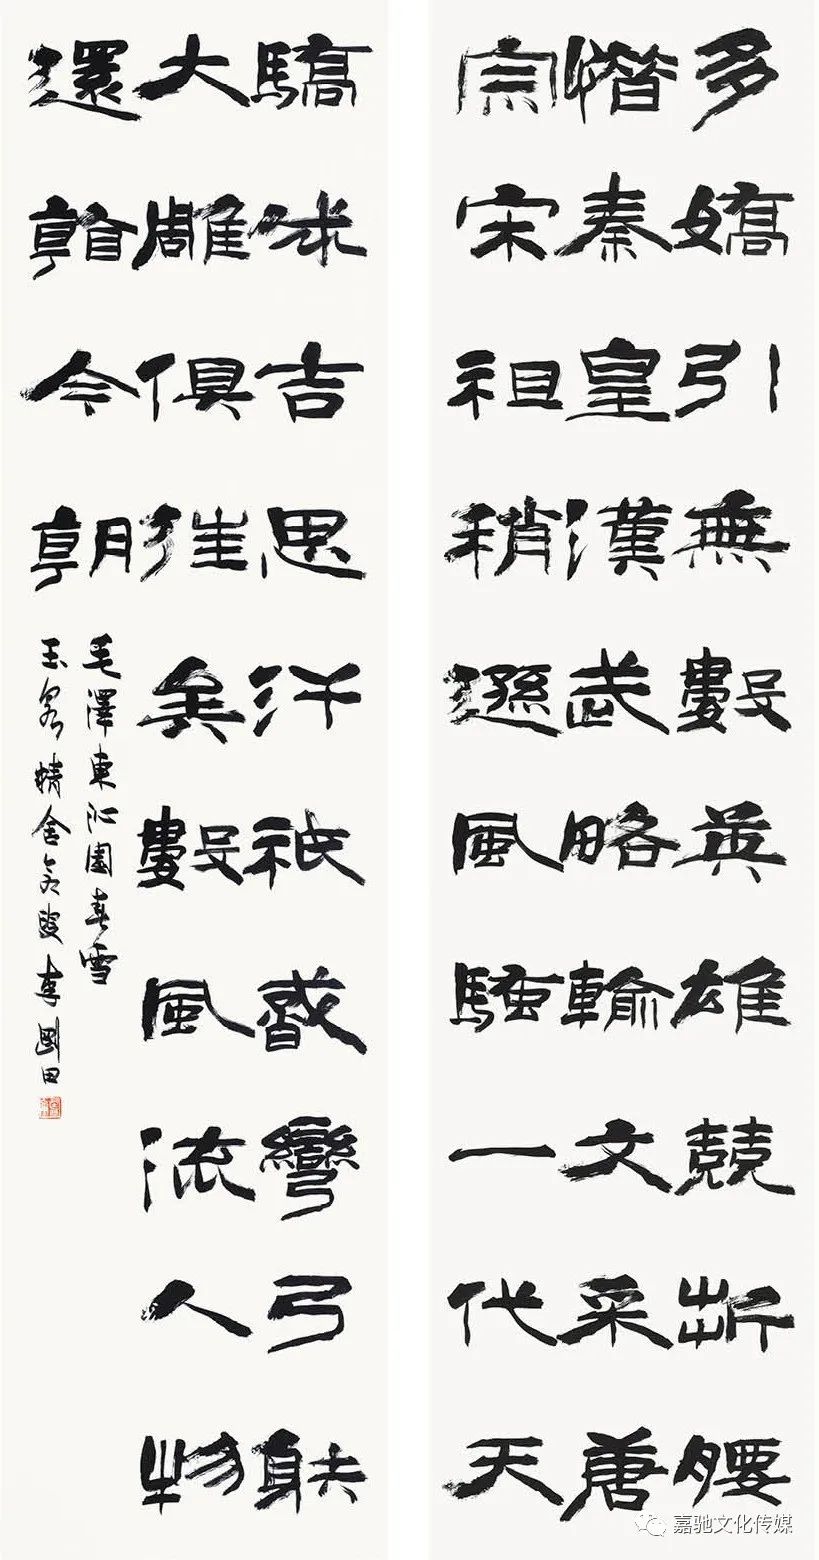 多嬌引無數英雄競折腰
惜秦皇漢武略輸文采唐
宗宋祖稍遜風騷一代天
驕成吉思汗祇識彎弓射
大雕俱往矣數風流人物
還看今朝
毛澤東沁園春雪
玉泉精舍叟李剛田
嘉驰文化传媒